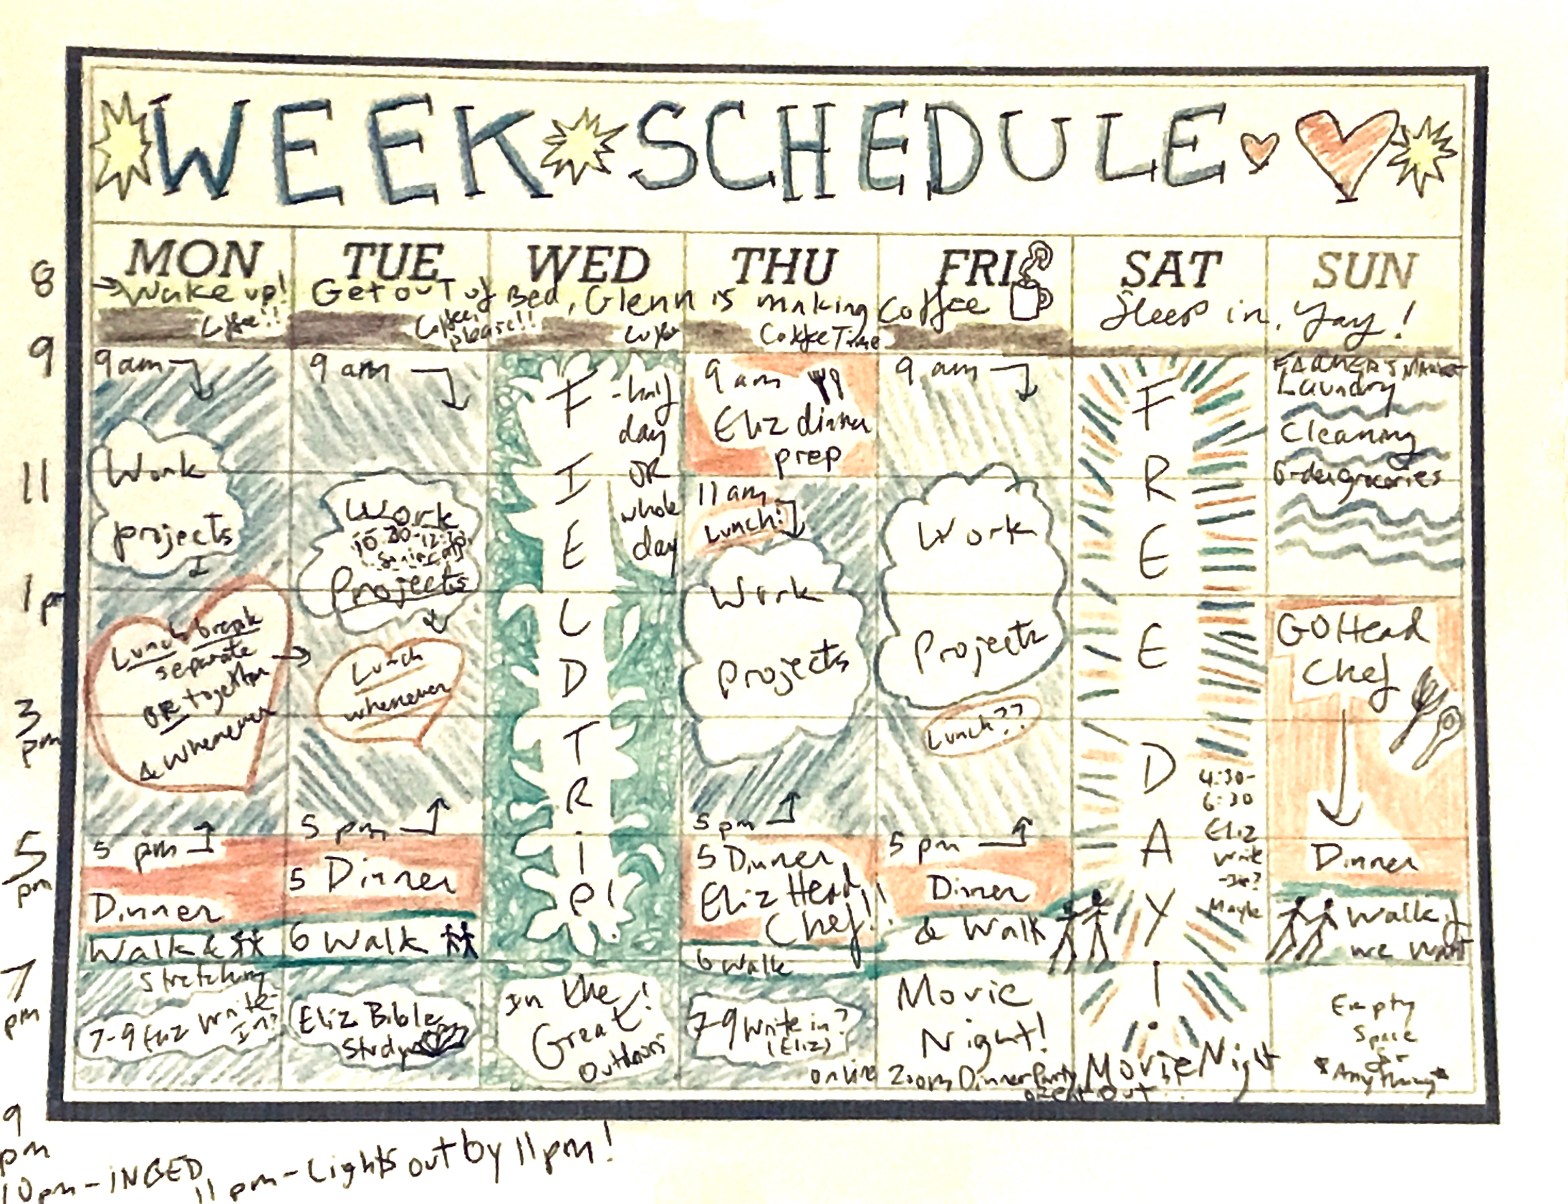 WEEK SCHEDULE
MON TUE WED THU FRI SAT SUN
8
→ Wake up! Get out of Bed, Glenn is making Coffee
Sleep in, Yay!
Coffee!!
Coffee, please!!
Coffee
Coffee Time
9
11
1 pm
3 pm
5 pm
7 pm
9 pm
9 am
Work
projects
Lunch break
separate
OR together
& whenever
5 pm
Dinner
Walk &
Stretching
7-9 Eliz Write-
In?
9 am
Work
10:30-12:30
Projects
Lunch
whenever
5 pm
5 Dinner
6 Walk
Eliz Bible
Study
FIELD TRIP!
-half
day
OR
whole
day
In the
Great!
Outdoors
9 am
Eliz dinner
prep
11 am
Lunch!
Work
Projects
5 pm
5 Dinner
Eliz Head
Chef!!
6 Walk
7-9 Write in?
(Eliz)
online
9 am
Work
Projects
Lunch??
5 pm
Dinner
& Walk
Movie
Night!
Zoom Dinner Party
or eat out
FREE DAY!
4:30-
6:30
Eliz
Write
-In?
Maybe
Movie Night
FARMERS MARKET
Laundry
Cleaning
Order groceries
GO Head
Chef
Dinner
Walk if
we want
Empty
Space
for
*Anything*
10 pm - IN BED
11 pm - Lights out by 11 pm!